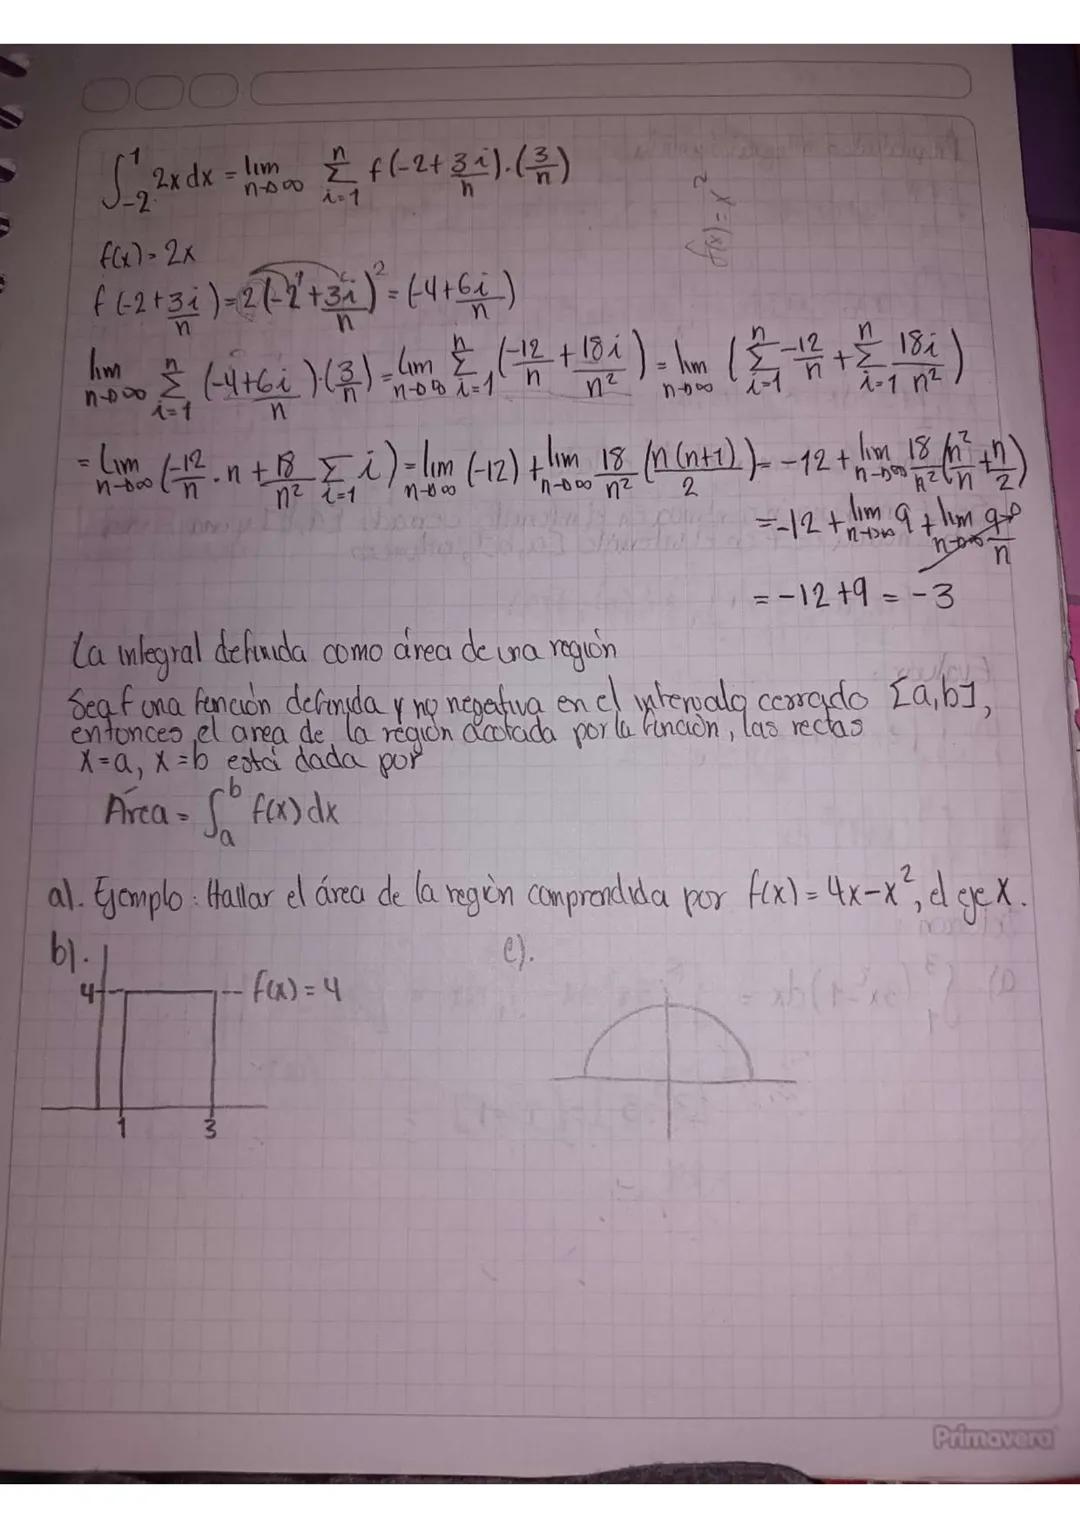 ∫₋₂¹ 2x dx = lim n→∞ Σ i=1 n f(-2+3i/n)·(3/n)
f(x) = x²
f(x) = 2x
f(-2+3i/n) = 2(-2+3i/n)² = (-4+6i/n)
lim n→∞ Σ i=1 n (-4+6i/n)·(3/n) = lim n→∞ Σ i=1 n (-12/n + 18i/n²) = lim n→∞ (Σ i=1 n -12/n + Σ i=1 n 18i/n²)
= lim n→∞ (-12/n · n + 18/n² Σ i=1 i) = lim n→∞ (-12) + lim n→∞ 18/n² (n(n+1)/2) = -12 + lim n→∞ 18/n² (n²/n + n/2)
= -12 + lim n→∞ 9 + lim n→∞ 9/n → 0
= -12+9 = -3
La integral definida como área de una región
Sea f una función definida y no negativa en el intervalo cerrado [a,b],
entonces el area de la región acotada por la función, las rectas
x=a, x=b está dada por
Área = ∫ₐᵇ f(x) dx
a). Ejemplo: Hallar el área de la región comprendida por f(x) = 4x-x², el eje X.
b). c).
4 f(x) = 4
1 3
Primavera